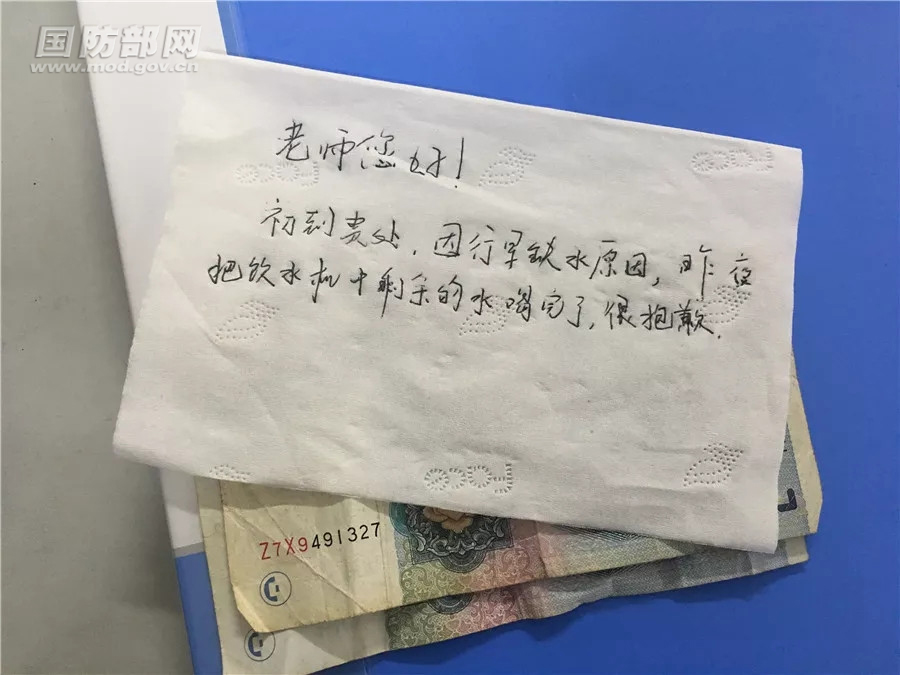 国防部网
www.mod.gov.cn
老师您好!
初到贵处,因行军缺水原因,昨夜
把饮水机中剩余的水喝完了,很抱歉.
Z7X9491327